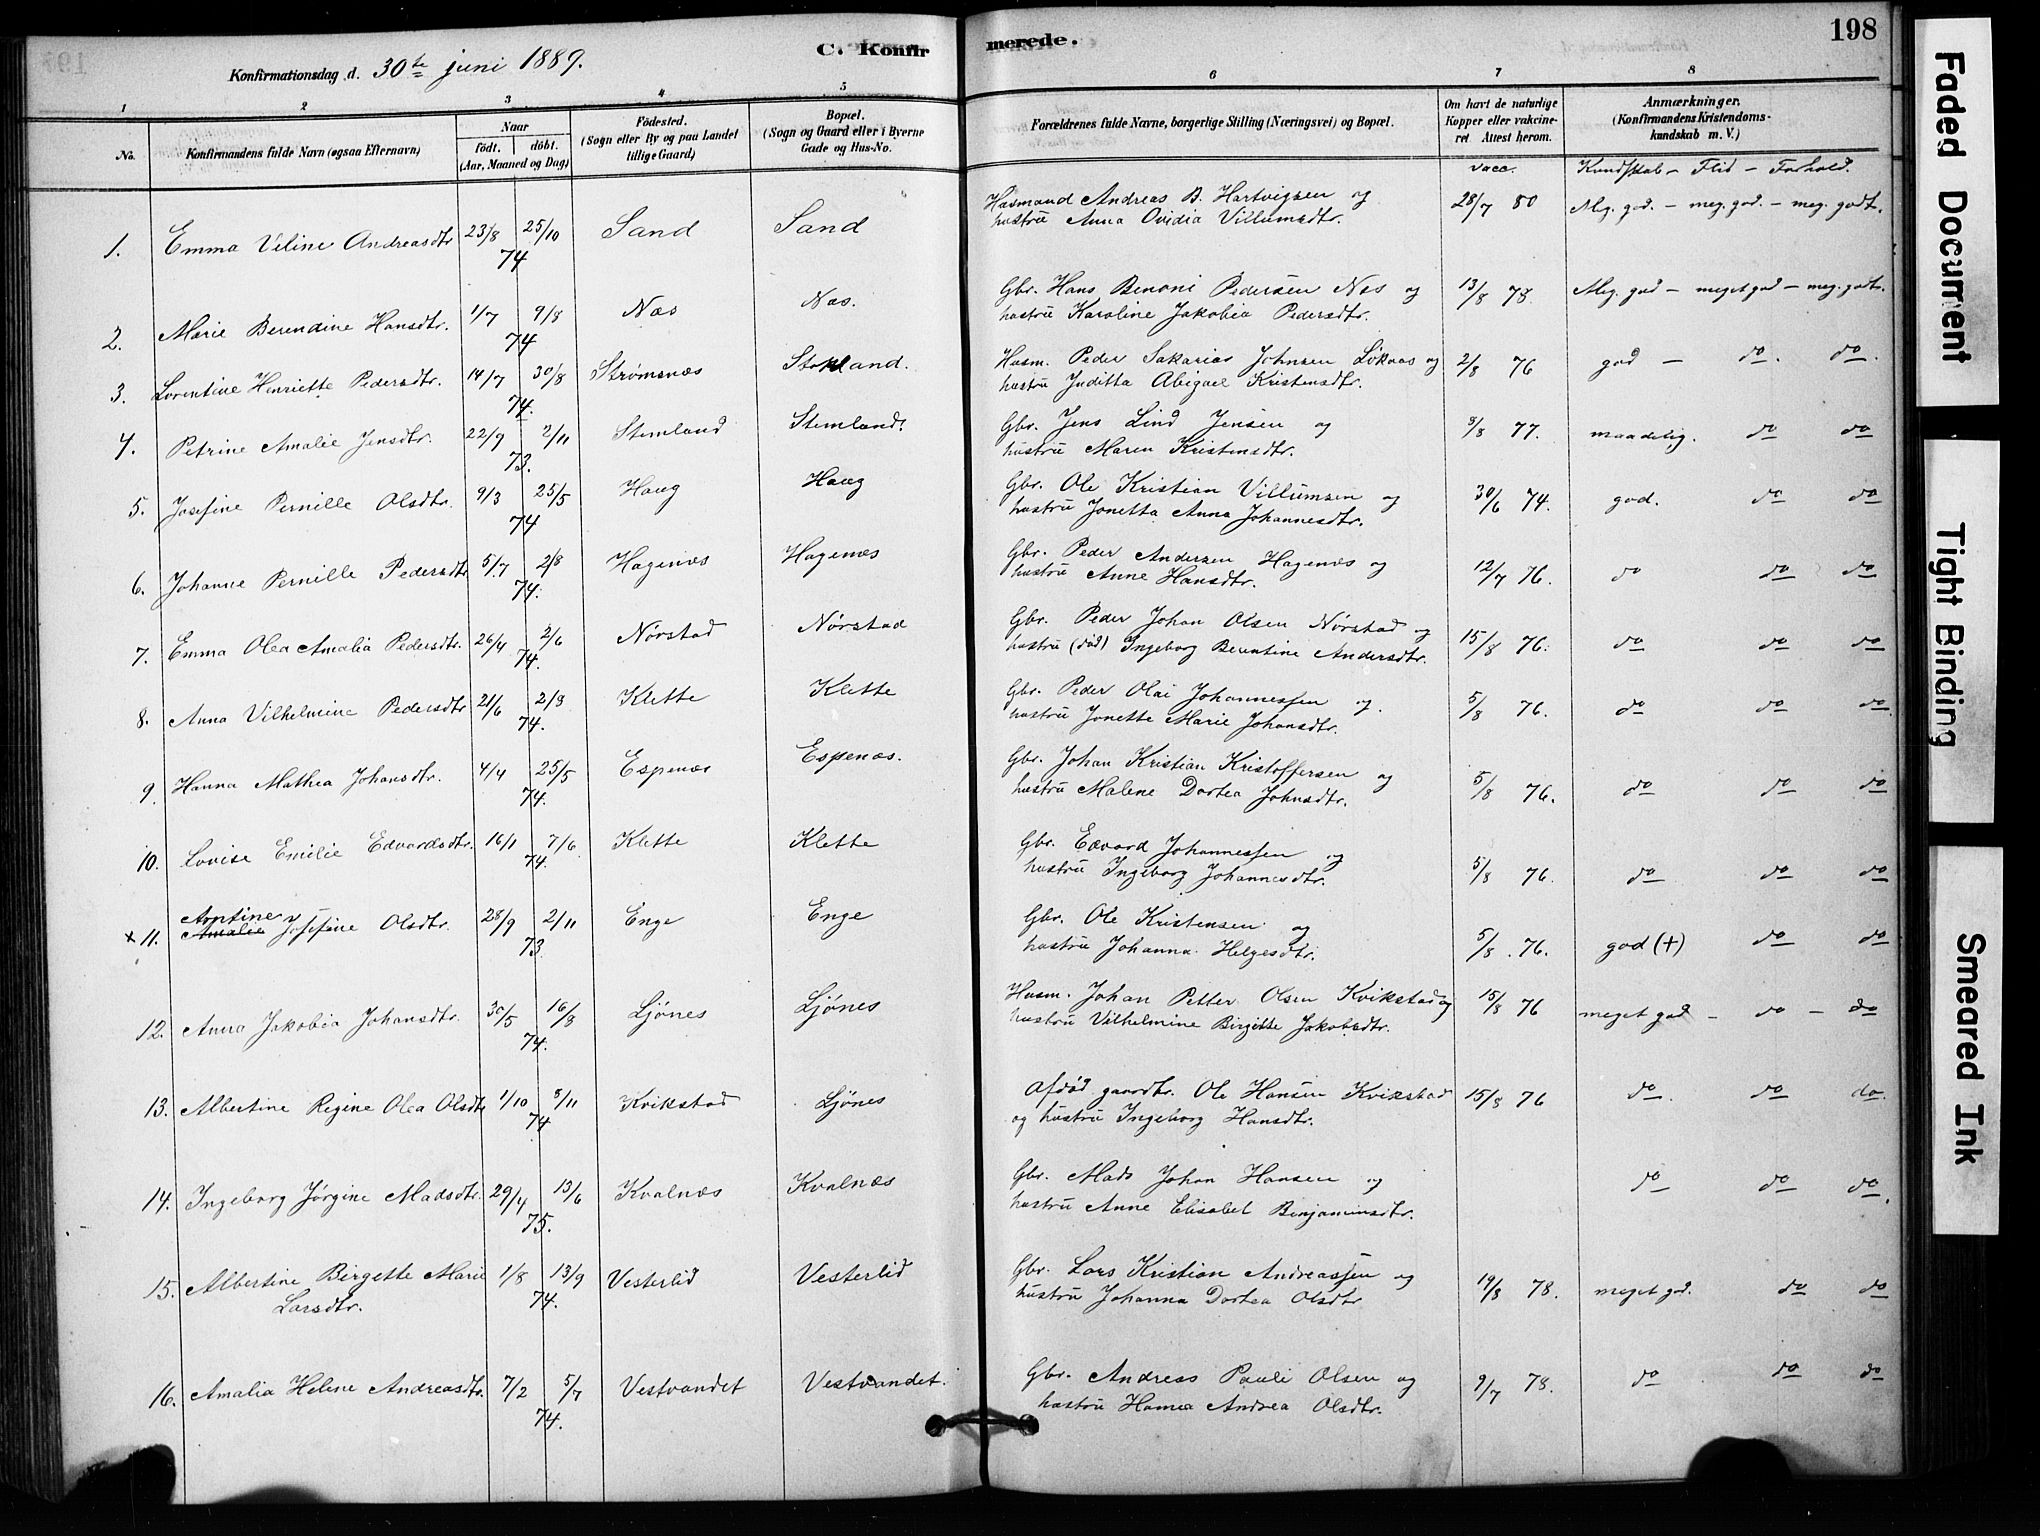 198
C. Konfirmerede.
Konfirmationsdag d. 30te juni 1889.
1 2 3 4 5 6 7 8
No.
Konfirmandens fulde Navn (ogsaa Efternavn)
Naar
födt. döbt.
(Aar, Maaned og Dag)
Födested.
(Sogn eller By og paa Landet
tillige Gaard)
Bopæl.
(Sogn og Gaard eller i Byerne
Gade og Hus-No.
Forældrenes fulde Navne, borgerlige Stilling (Næringsvei) og Bopæl.
Om havt de naturlige
Kopper eller vakcine-
ret Attest herom.
Anmærkninger.
(Konfirmandens Kristendoms-
kundskab m. V.)
vacc. Kundskab - Flid - Forhold.
1. Emma Veline Andreasdtr 23/8 25/10 74 Sand Sand Husmand Andreas B. Hartvigsen og 28/7 80 Meg. god. - meg. god. - meg. godt.
hustru Anna Ovidia Villumsdtr.
2. Marie Berendine Hansdtr. 1/7 9/8 74 Næs Næs. Gbr. Hans Benoni Pedersen Næs og 13/8 78. Meg. god - meget god - meg. godt.
hustru Karoline Jakobia Pedersdtr.
3. Lorentine Henriette Pedersdtr. 14/7 30/8 74. Strømsnæs Stokland. Husm. Peder Sakarias Johnsen Løkaas og 2/8 76 god - do. do.
hustru Juditta Abigael Kristensdtr.
4. Petrine Amalie Jensdtr. 22/9 2/11 73. Stemland Stemland. Gbr. Jens Lind Jensen og 8/8 77. maadelig. do do
hustru Maren Kristensdtr.
5. Josefine Pernille Olsdtr. 9/3 25/5 74 Haug Haug Gbr. Ole Kristian Villumsen og 30/6 74. god. do do
hustru Jonetta Anna Johannesdtr.
6. Johanne Pernille Pedersdtr 5/7 2/8 74. Hagenæs Hagenæs Gbr. Peder Andersen Hagenæs og 12/7 76. do do do
hustru Anne Hansdtr.
7. Emma Olea Amalia Pedersdtr. 26/4 2/6 74. Nørstad Nørstad Gbr. Peder Johan Olsen Nørstad og 15/8 76. do do do
hustru (død) Ingeborg Berentine Andersdtr.
8. Anna Vilhelmine Pedersdtr 21/6 2/8 74. Klette Klette Gbr. Peder Olai Johannessen og. 5/8 76. do do do
hustru Jonette Marie Johansdtr.
9. Hanna Mathea Johansdtr. 4/4 25/5 74. Espenæs Espenæs. Gbr. Johan Kristian Kristoffersen og 5/8 76. do do do
hustru Malene Dortea Johnsdtr.
10. Lovise Emilie Edvardsdtr. 16/1 7/6 74. Klette Klette Gbr. Edvard Johannessen og 5/8 76. do do do
hustru Ingeborg Johannesdtr.
Arntine
x 11. Amalie Josefine Olsdtr. 28/9 2/11 73. Enge Enge Gbr. Ole Kristensen og 5/8. 76. god (+) do do
hustru Johanna Helgesdtr.
12. Anna Jakobia Johansdtr. 30/5 16/8 74. Ljönes Ljönes Husm. Johan Petter Olsen Kvikstad og 15/8 76 meget god - do - do
hustru Vilhelmine Birgitte Jakobsdtr.
13. Albertine Regine Olea Olsdtr 1/10 8/11 74 Kvikstad Ljönes Afdød gaardbr. Ole Hansen Kvikstad 15/8 76 do. do do.
og hustru Ingeborg Hansdtr.
14. Ingeborg Jørgine Madsdtr. 29/4 13/6 75. Kvalnæs Kvalnæs Gbr. Mads Johan Hansen og do do do.
hustru Anne Elisabet Benjaminsdtr.
15. Albertine Birgette Marie 1/8 13/9 74. Vesterlid Vesterlid Gbr. Lars Kristian Andreassen og 19/8 78. meget god. do do
Larsdtr. hustru Johanna Dortea Olsdtr
16. Amalia Helene Andreasdtr. 7/2 5/7 74. Vestvandet Vestvandet. Gbr. Andreas Pauli Olsen og 9/7 78. do do do
hustru Hanna Andrea Olsdtr.
Faded Document
Tight Binding
Smeared Ink